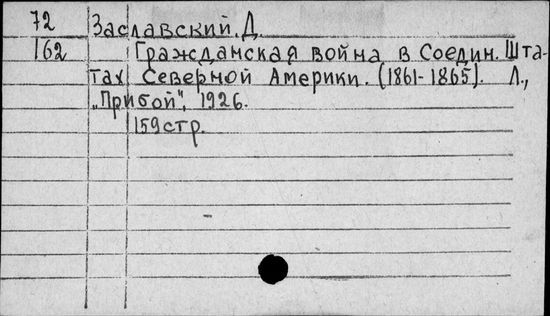 72 Заславский. Д.
162 Гражданская война в Соедин. Шта-
тах Северной Америки. (1861-1865). Л.,
„Прибой", 1926.
159 стр.